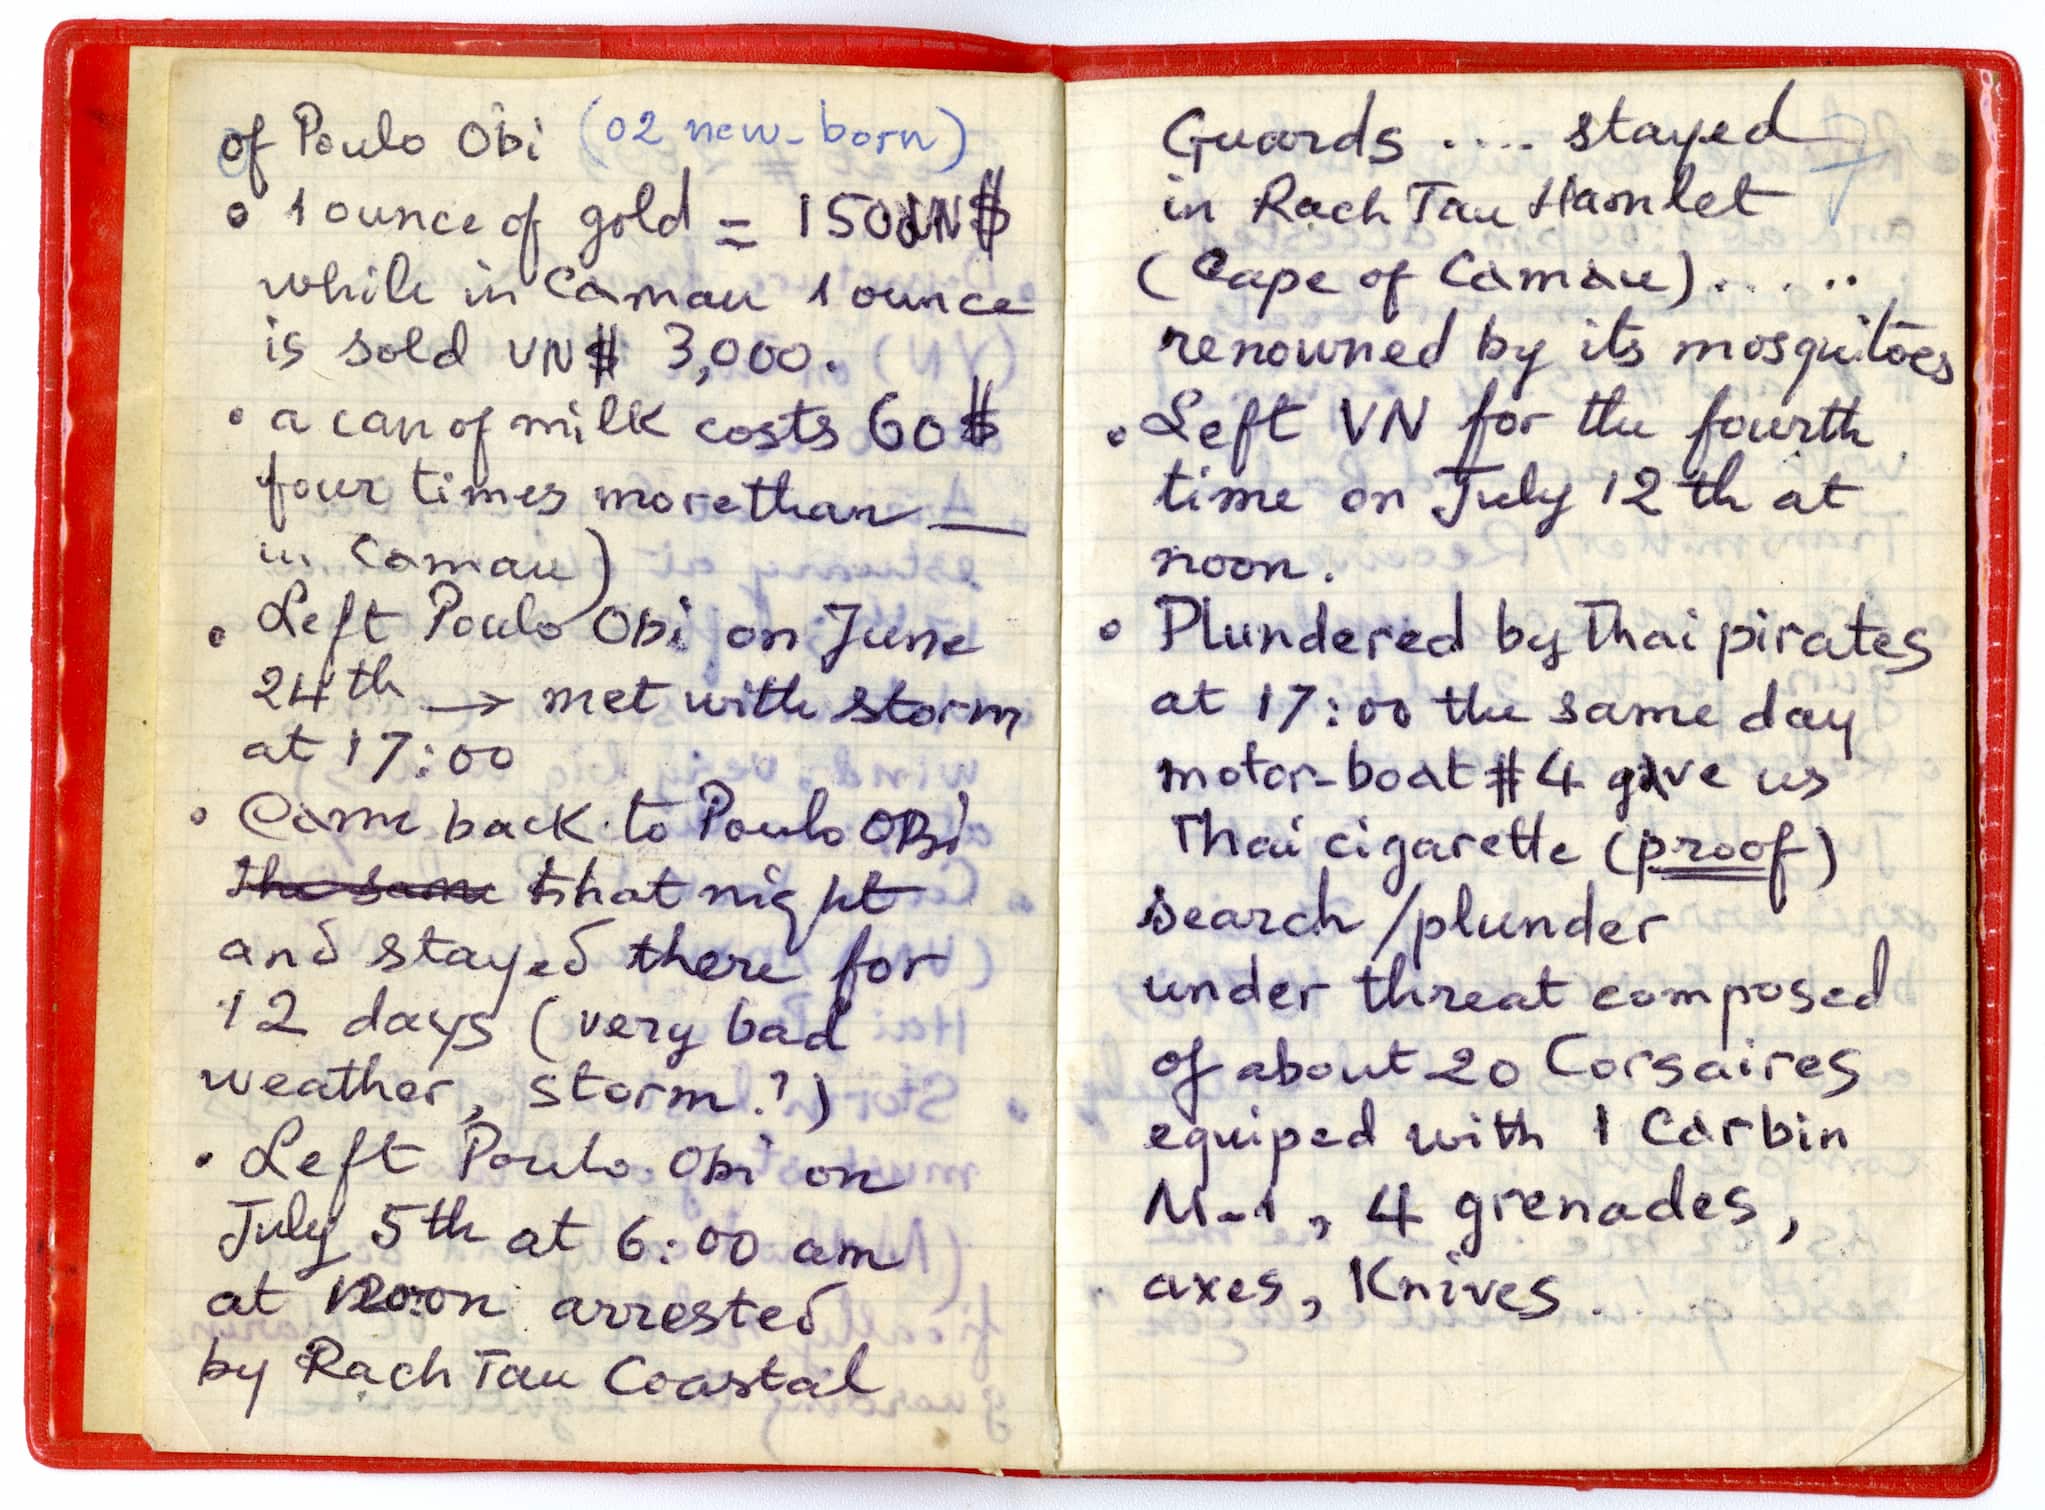 of Poulo Obi (02 new-born)
• 1 ounce of gold = 1500 VN$
while in Camau 1 ounce
is sold VN$ 3,000.
• a can of milk costs 60$
four times more than —
in Camau)
• Left Poulo Obi on June
24th → met with storm
at 17:00
• Came back to Poulo OBi
the same that night
and stayed there for
12 days (very bad
weather, storm.?)
• Left Poulo Obi on
July 5th at 6:00 am
at noon arrested
by Rach Tau Coastal
Guards .... stayed
in Rach Tau Hamlet
(Cape of Camau).....
renowned by its mosquitoes
• Left VN for the fourth
time on July 12th at
noon.
• Plundered by Thai pirates
at 17:00 the same day
motor-boat #4 give us
Thai cigarette (proof)
search/plunder
under threat composed
of about 20 Corsaires
equiped with 1 Carbin
M-1, 4 grenades,
axes, Knives.